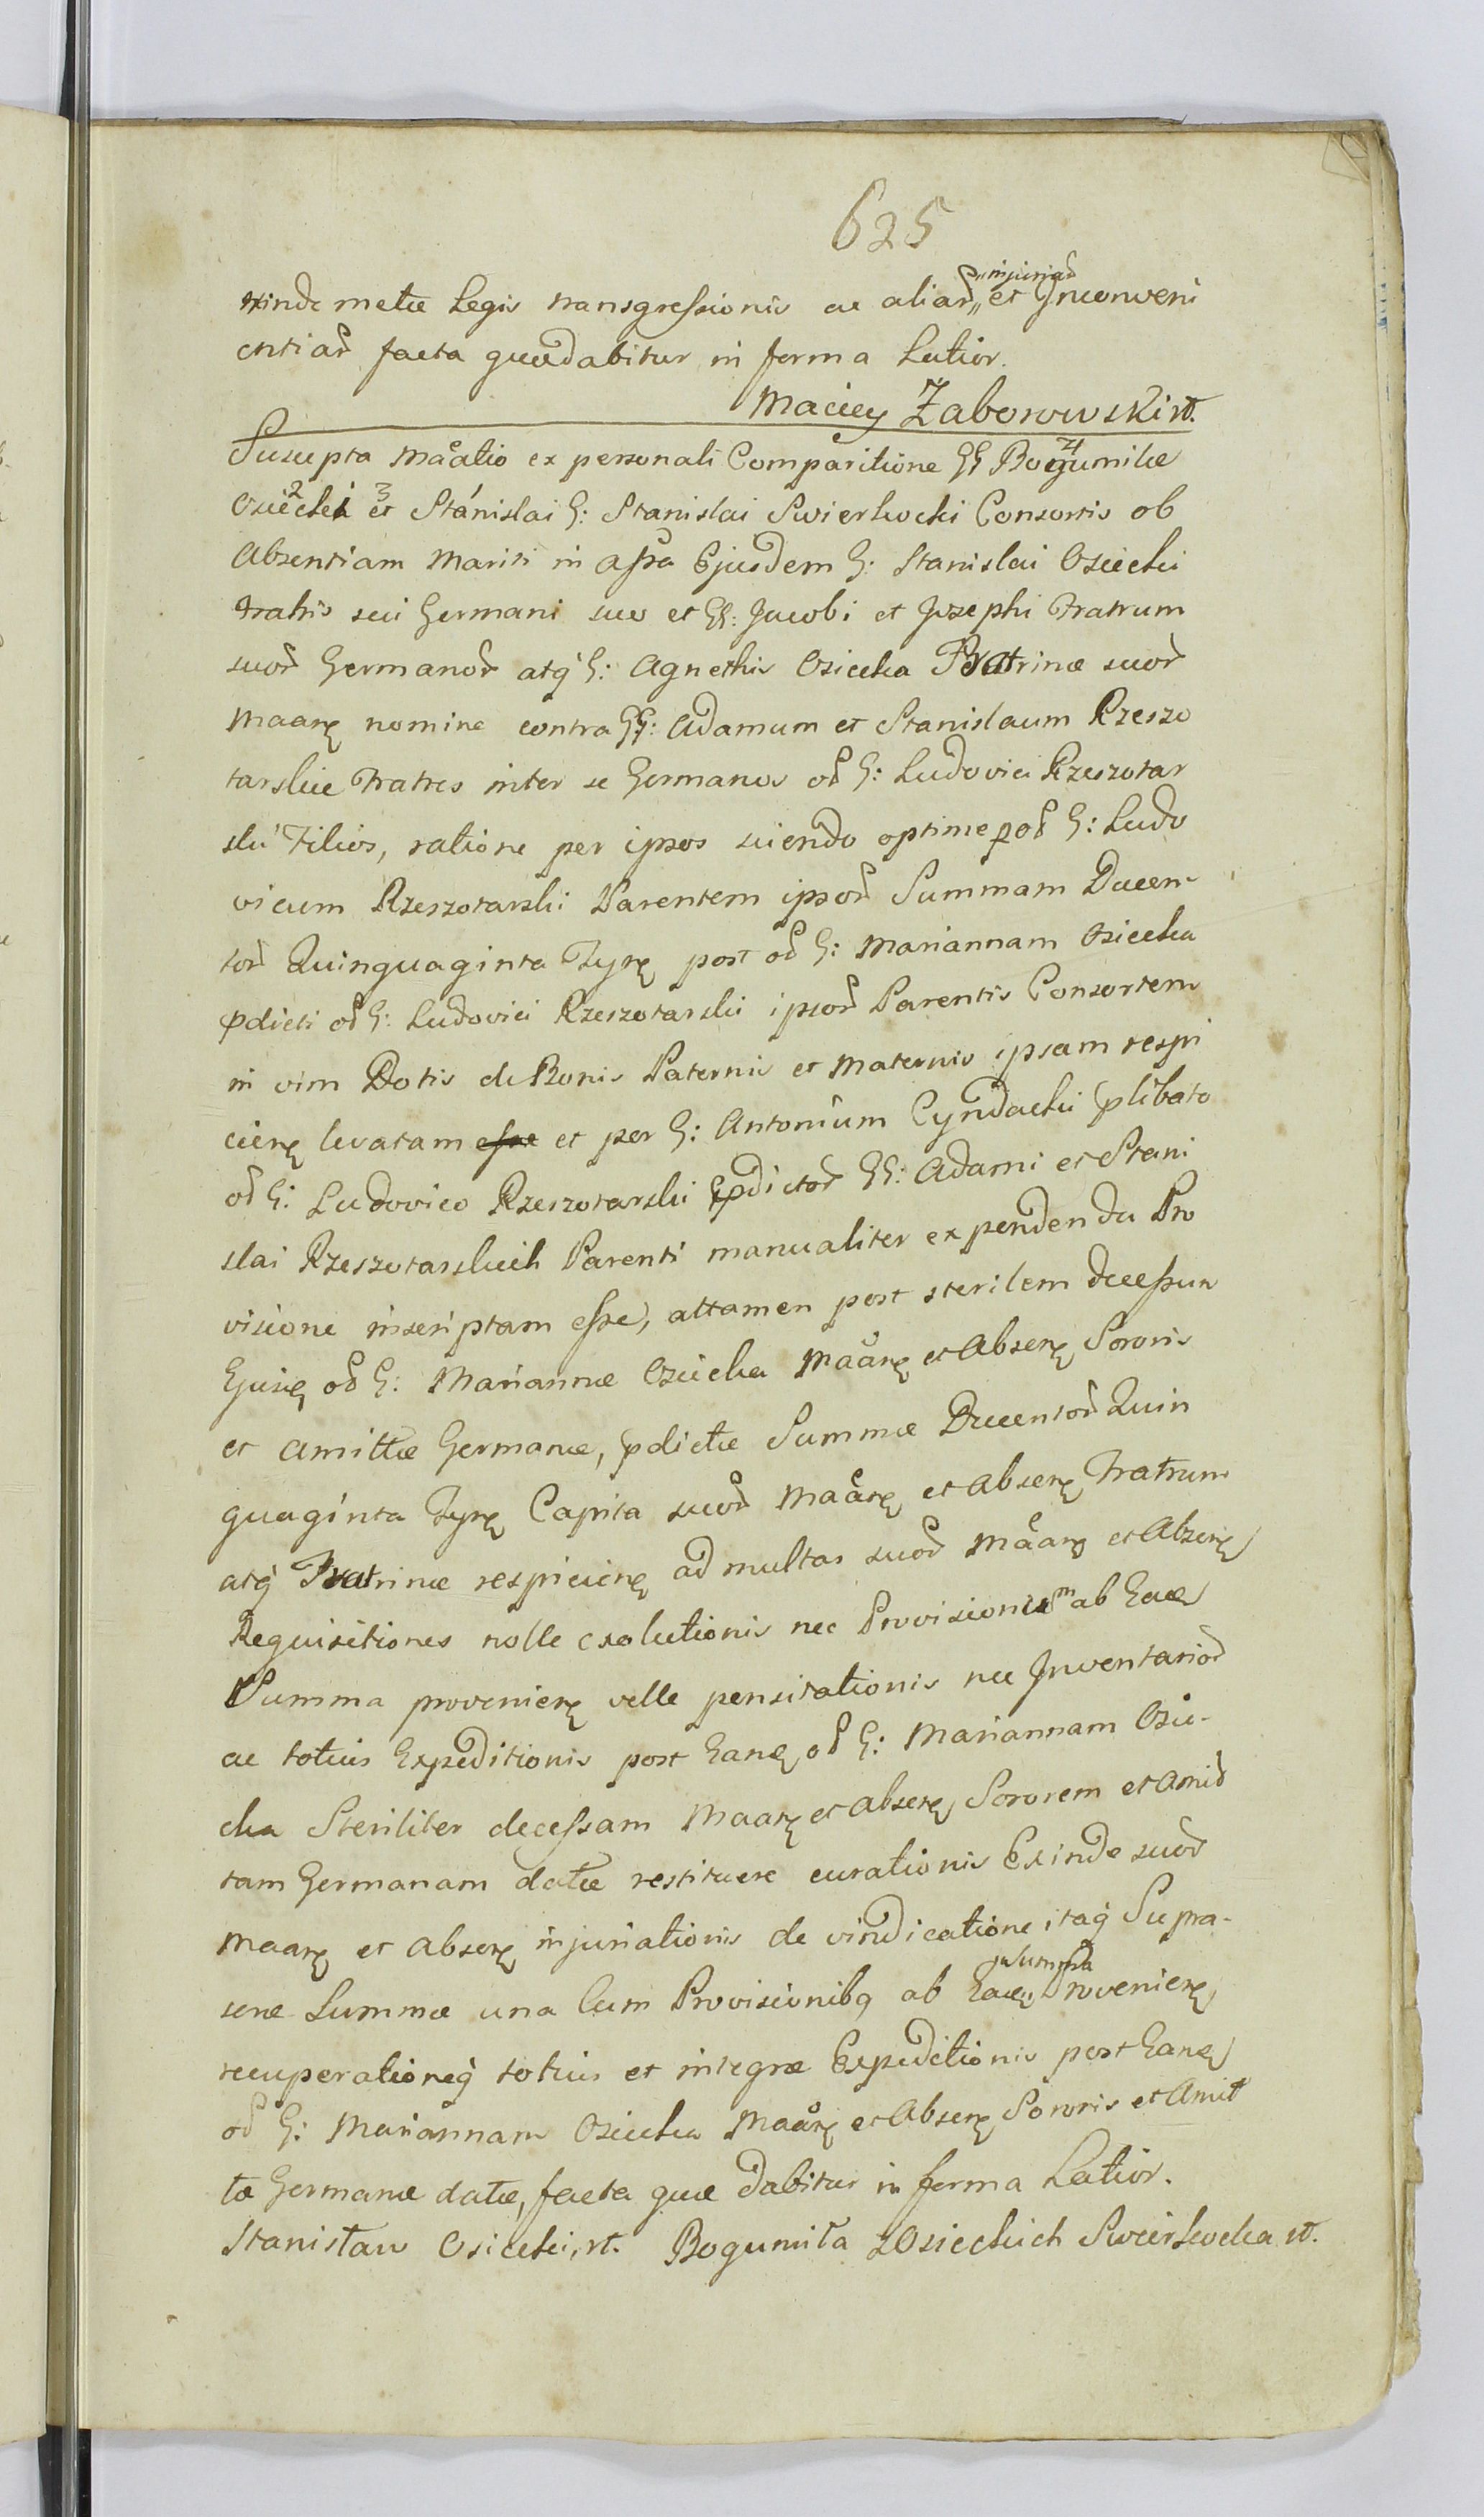 625
xinde metæ Legis transgressionis ac aliar" injuriar" et Inconveni
entiar facta quæ dabitur in forma Latior.
Maciey Zaborowski rt.
Suscepta Maãtio ex personali Comparitione GG Bogumilæ 4
Osiecki 2 et 3 Stanislai G: Stanislai Swierkocki Consortis ob
Absentiam Mariti in assa Ejusdem G: Stanislai Osiecki
Fratris sui Germani suo et GG: Jacobi et Josephi Fratrum
suor Germanor atq G: Agnethis Osiecka Fratrinæ suor
Maarę nomine contra GG: Adamum et Stanislaum Rzeszo
tarskie Fratres inter se Germanos od G: Ludovici Rzeszotar
ski Filios, ratione per ipsos sciendo optime p od G: Ludo
vicum Rzeszotarski Parentem ipsor Summam Ducen-
tor Quinquaginta Tyrę post od G: Mariannam Osiecka
pdicti od G: Ludovici Rzeszotarski ipsor Parentis Consortem
in vim Dotis de Bonis Paternis et Maternis ipsam respi
cienę levatam esse et per G: Antonium Cyndacki plibato
od G: Ludovico Rzeszotarski pdictor GG: Adami et Stani
slai Rzeszotarskich Parenti manualiter expendenda Pro
visione inscriptam esse, attamen post sterilem decessum
Ejusę od G: Mariannæ Osiecka Maarę et Absenę Sororis
et Amittæ Germanæ, pdictæ Summæ Ducentor Quin
quaginta Tyrę Capita suor Maarę et Absenę Fratrum
atq Fratrinæ respicienę ad multas suor Maarę et Absenę
Requisitiones nolle exolutionis nec Provisionem ab Eacę
Summa provenienę velle pensitationis nec Inventarior
ac totius Expeditionis post Eanę od G: Mariannam Osie-
cka Steriliter decessam Maarę et absenę Sororem et Amit
tam Germanam datæ restituere curationis Exinde suor
Maarę et absenę injuriationis de vindicatione itaq Supra-
scrię Summæ una Cum Provisionibq ab Eacę" Summa Provenienę
recuperationeq totius et integræ Expeditionis post Eanę
od G: Mariannam Osiecka Maarę et Absenę Sororis et Amit
tæ Germanæ datæ, facta quæ dabitur in forma Latior.
Stanisław Osiecki, rt. Bogumiła z Osieckich Swierkocka rt.